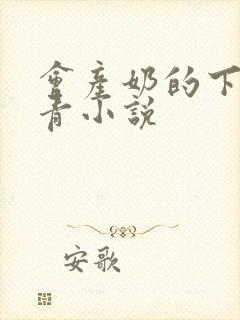 會產奶的下
青小說
安歌